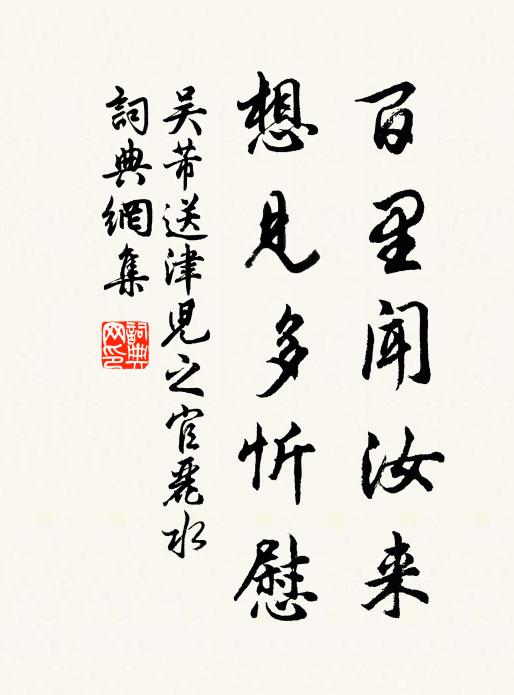 百里闻汝来
想见多忻慰
吴芾送津児之官丽水
詞典網集
詞典网印